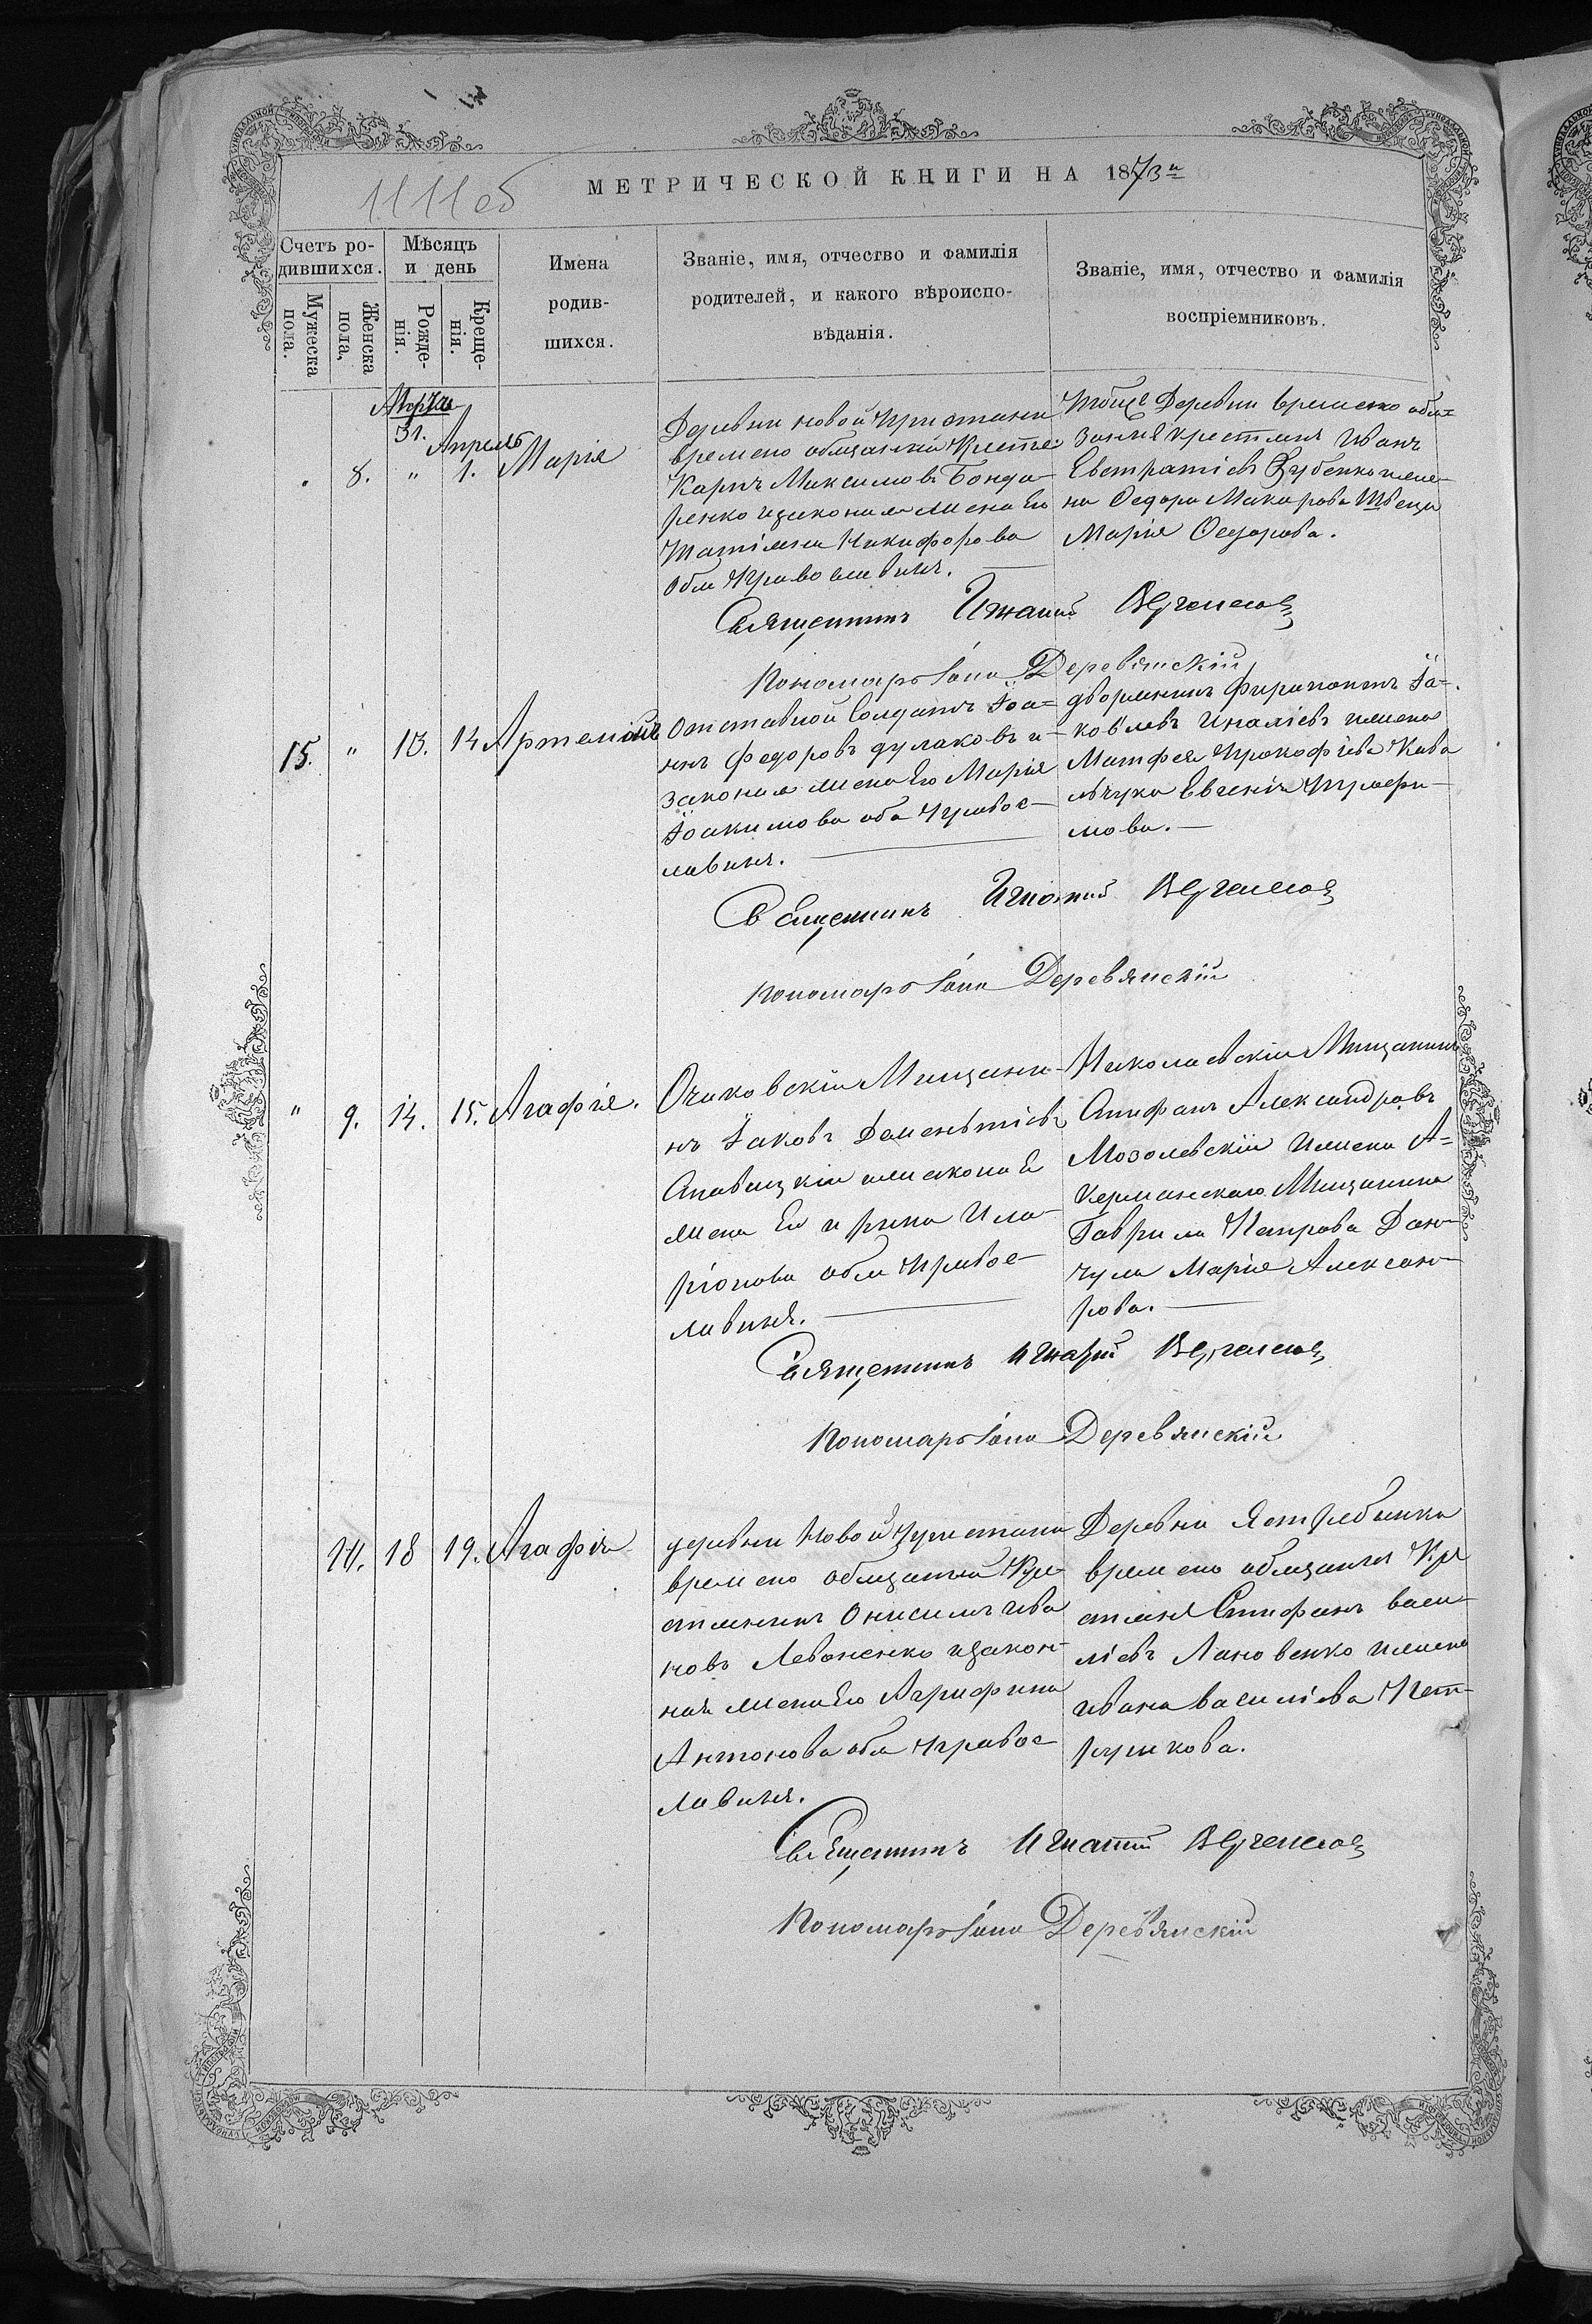 МЕТРИЧЕСКОЙ КНИГИ НА 1873й
1111об
Счетъ ро-
дившихся.
Мужеска
пола.
Женска
пола.
Мѣсяцъ
и день
Рожде-
нія.
Креще-
нія.
Имена
родив-
шихся.
Званіе, имя, отчество и фамилія
родителей, и какого вѣроиспо-
вѣданія.
Званіе, имя, отчество и фамилія
воспріемниковъ.
Марта
31.
Апрель
8. " 1. Марія
Деревни новой Пристани
времено обязаный Крестья
Карпъ Максимовъ Бонда-
ренко изаконая жена Его
Татіяна Никифорова
оба Православны.
Тойже Деревни временно обя=
заный крестянъ Иванъ
Евстратіевъ Зубенко ижена
Федора Макарова Швеца
Марія Федорова.
Священникъ Игнатий
Пономарь Іоанъ Деревянскій
15. " 13. 14 Артемій
Отставной Солдатъ Іоа=
нъ Федоровъ дулаковъ и
законая жена Его Марія
Іоакимова оба Правос-
лавные.
дворянинъ Іа=
ковлевъ ижена
Матфея Прокофіева Кова
льчука Евгенія Трофи-
мова.
Священникъ Игнатий
Пономарь Іоанъ Деревянскій
" 9. 14. 15. Агафія.
Очаковскій Мищани-
нъ Іаковъ Дементіевъ
жена Его ирина Ила-
ріонова оба Правос-
лавныя.
Николаевскій Мищанинъ
Стифанъ Александровъ
Мозолевскій ижена А=
керманскаго Мищанина
Гаврила Петрова Дан-
чула Марія Александ-
рова.
Священникъ Игнатий
Пономарь Іоанъ Деревянскій
10. 18 19. Агафія
деревни Новой Пристани
времено обязаный Кре
стянинъ Онисимъ ива
новъ Леваненко изакон-
ная жена Его Агрифина
Антонова оба Правос
лавныя.
Деревни Ястребинки
времено обязаный Кре
стянъ Стифанъ васи-
ліевъ Лановенко ижена
ивана василіева Пет-
рушкова.
Священникъ Игнатий
Пономарь Іоанъ Деревянскій